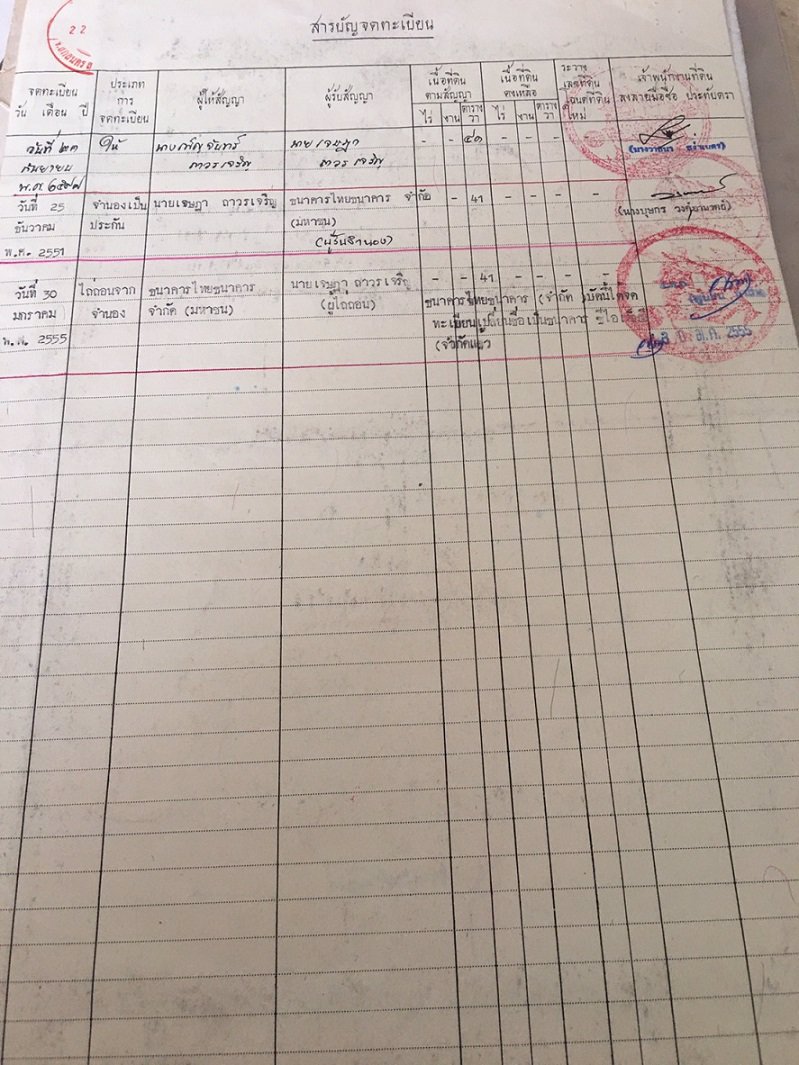 22
สารบัญจดทะเบียน
จดทะเบียน
วัน เดือน ปี
ประเภท
การ
จดทะเบียน
ผู้ให้สัญญา
ผู้รับสัญญา
เนื้อที่ดิน
ตามสัญญา
ไร่ งาน ตาราง
วา
เนื้อที่ดิน
คงเหลือ
ไร่ งาน ตาราง
วา
ระวาง
เลขที่ดิน
โฉนดที่ดิน
ใหม่
เจ้าพนักงานที่ดิน
ลงลายมือชื่อ ประทับตรา
วันที่ ๒๓
กันยายน
พ.ศ.
ให้
นางเพ็ญจันทร์
ถาวรเจริญ
นายเจษฎา
ถาวรเจริญ
- - ๔๑ - - - -
วันที่ 25
ธันวาคม
พ.ศ. 2551
จำนองเป็น
ประกัน
นายเจษฎา ถาวรเจริญ
ธนาคารไทยธนาคาร จำกัด
(มหาชน)
(ผู้รับจำนอง)
- 41 - - - -
(นางบุษกร
วันที่ 30
มกราคม
พ.ศ. 2555
ไถ่ถอนจาก
จำนอง
ธนาคารไทยธนาคาร
จำกัด (มหาชน)
นายเจษฎา ถาวรเจริญ
(ผู้ไถ่ถอน)
- - 41 - - - -
ธนาคารไทยธนาคาร (จำกัด )บัดนี้ได้จด
ทะเบียนเปลี่ยนชื่อเป็นธนาคาร ซีไอเอ็มบี
(จำกัดแล้ว
2555